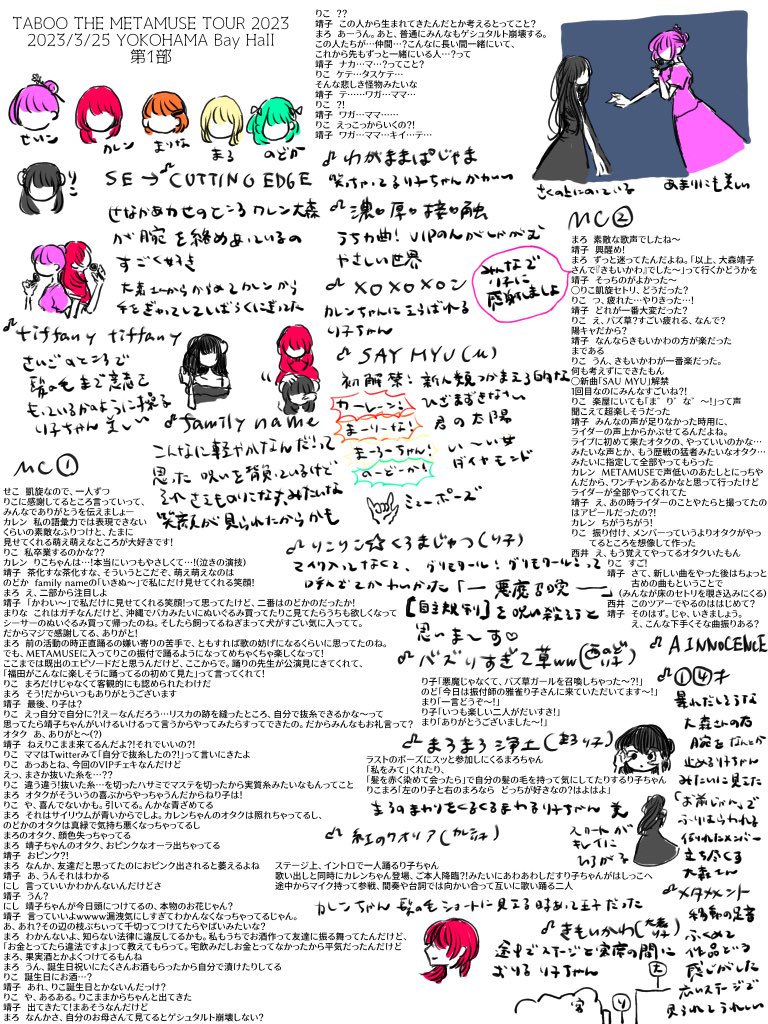 TABOO THE METAMUSE TOUR 2023
2023/3/25 YOKOHAMA Bay Hall
第1部
せいこ
カレン
まりな
まろ
のどか
りこ
SE → CUTTING EDGE
せなかあわせのところ カレン大森
が腕を絡めあっているの
すごく好き
tiffany tiffany
さいごのところで
髪の毛まで意志を
もっているかのように操る
りこちゃん美しい
family name
こんなに軽やかなんだ!って
思った 呪いを背負っているけど
笑顔が見られたからかも
MC①
せこ 凱旋なので、一人ずつ
りこに感謝してるところ言っていって、
みんなでありがとうを伝えましょー
カレン 私の語彙力では表現できない
くらいの素敵なふりつけと、たまに
見せてくれる萌え萌えなところが大好きです!
りこ 私卒業するのかな??
カレン りこちゃんは…本当にいつもやさしくて…!(泣きの演技)
靖子 茶化すな茶化すな、そういうとこだぞ、萌え萌えなのは
のどか family nameの「いきぬ〜」で私にだけ見せてくれる笑顔!
まろ え、二部から注目しよ
靖子 「かわい〜」で私だけに見せてくれる笑顔!って思ってたけど、二番はのどかのだったか!
まりな これはガチなんだけど、沖縄でバカみたいにぬいぐるみ買ってたりこ見てたらうち欲しくなって
シーサーのぬいぐるみ買って帰ったのね。そしたら飼ってるねぎまって犬がすごい気に入ってて。
だからマジで感謝してる、ありがと!
まろ 前の活動の時正直踊るの嫌い寄りの苦手で、ともすれば歌の妨げになるくらいに思ってたのね。
でも、METAMUSEに入ってりこの振付で踊るようになってめちゃくちゃ楽しくなって!
ここまでは既出のエピソードだと思うんだけど、ここからで。踊りの先生が公演見にきてくれて、
「福田がこんなに楽しそうに踊ってるの初めて見た」って言ってくれて!
りこ まろだけじゃなくて客観的にも認められたわけだ
まろ そう!だからいつもありがとうございます
靖子 最後、りこは?
りこ えっ自分で自分に?!えーなんだろう…リスカの跡を縫ったところ、自分で抜糸できるかな〜って
思ってたら靖子ちゃんがいけるいけるって言うからやってみたらすってできたの。だからみんなもお礼言って?
オタク あ、ありがと〜(?)
靖子 ねえりこまま来てるんだよ?!それでいいの?!
りこ ママはTwitterみて「自分で抜糸したの?!」って言いにきたよ
りこ あっとあね、今回のVIPチェキなんだけど
えっ、まさか抜いた糸を…??
りこ 違う違う!抜いた糸…を切ったハサミでマステを切ったから実質糸みたいなもんってこと
まろ オタクがそういうの喜ぶからやっちゃうんだからねり子は!
りこ や、喜んでないかも。引いてる。んかな青ざめてる
まろ それはサイリウムが青いからでしょ。カレンちゃんのオタクは照れちゃってるし、
のどかのオタクは真緑で気持ち悪くなっちゃってるし
まろのオタク、顔色失っちゃってる
まろ 靖子ちゃんのオタク、おピンクなオーラ出ちゃってる
靖子 おピンク?!
まろ なんか、友達だと思ってたのにおピンク出されると萎えるよね
靖子 あ、うんそれはわかる
にし 言っていいかわかんないんだけどさ
靖子 うん?
にし 靖子ちゃんが今日頭につけてるの、本物のお花じゃん?
靖子 言っていいよwwww漏洩気にしすぎてわかんなくなっちゃってるじゃん。
あ、あれ?その辺の枝ぶちいって千切ってつけてたらやばいみたいな?
まろ わかんないよ、知らない法律に違反してるかも。私もうちでお酒作って友達に振る舞ってたんだけど、
「お金とってたら違法ですよ」って教えてもらって。宅飲みだしお金とってなかったから平気だったんだけど
まろ、果実酒とかよくつけてるもんね
まろ うん、誕生日祝いにたくさんお酒もらったから自分で漬けたりしてる
りこ 誕生日にお酒…?
靖子 あれ、りこ誕生日とかないんだっけ?
りこ や、あるある。りこままからちゃんと出てきた
靖子 出てきたて!まあそうなんだけど
まろ なんかさ、自分のお母さんて見てるとゲシュタルト崩壊しない?
りこ ??
靖子 この人から生まれてきたんだとか考えるとってこと?
まろ あーうん。あと、普通にみんなもゲシュタルト崩壊する。
この人たちが…仲間…?こんなに長い間一緒にいて、
これから先もずっと一緒にいる人…?って
靖子 ナカ…マ…?ってこと?
りこ ケテ…タスケテ…
そんな悲しき怪物みたいな
靖子 テ……ワガ…ママ…
りこ ?!
靖子 ワガ…ママ……
りこ えっこっからいくの?!
靖子 ワガ…ママ…キイ…テ…
わがままぱじゃま
笑っちゃってるりこちゃんかわいい
濃♡厚♡接♡触
うちわ曲! VIPのんがしゃがむ
やさしい世界
×○×○×○ン
カレンちゃんにえらばれる
りこちゃん
みんなで
りこに
感謝しましょ
SAY MYU(仏)
初解禁! 新人類つかまえる的な
ひざまずきない
君の太陽
い〜い女
ダイヤモンド
カーレーン!
まーりーな!
まーろーちゃん!
のーどーか!
ミューポーズ
りこりこ☆くろまじゅつ(りこ)
呼んでてかわいかった「―悪魔召喚―」
【自主規制】を呪い殺そうと
思いまーす♡
バズりすぎて草ww
り子「悪魔じゃなくて、バズ草ガールを召喚しちゃった〜?!」
のど「今日は振付師の雅雀り子さんに来ていただいてます〜!」
まり「一言どうぞ〜!」
り子「いつも楽しい二人がだいすき!」
まり「ありがとうございました〜!」
まろまろ浄土(まろ りこ)
ラストのポーズにスッと参加しにくるまろちゃん
「私をみて」くれたり、
「髪を赤く染めて会ったら」で自分の髪の毛を持って気にしてたりするり子ちゃん
りこまろ「左のり子と右のまろなら どっちが好きなの?はよはよ」
まろのまわりをくるくるまわるりこちゃん 美
紅のクオリア(カレンりこ)
ステージ上、イントロで一人踊るり子ちゃん
歌い出しと同時にカレンちゃん登場、ご本人降臨?!みたいにあわあわしだすり子ちゃんがはしっこへ
途中からマイク持って参戦、間奏や台詞では向かい合って互いに歌い踊る二人
カレンちゃん 髪の毛ショートに見える時あって王子だった
きもいかわ(大森りこ)
途中でステージと客席の間に
おりる りこちゃん
さくの上にのっている
あまりにも美しい
MC②
まろ 素敵な歌声でしたね〜
靖子 興醒め!
まろ ずっと迷ってたんだよね。「以上、大森靖子
さんで『きもいかわ』でした〜」って行くかどうかを
靖子 そっちのがよかった〜
○りこ凱旋セトリ、どうだった?
りこ つ、疲れた…やりきった…!
靖子 どれが一番大変だった?
りこ え、バズ草?すごい疲れる、なんで?
陽キャだから?
靖子 なんならきもいかわの方が楽だった
まである
りこ うん、きもいかわが一番楽だった。
何も考えずにできたもん
○新曲「SAU MYU」解禁
1回目なのにみんなすごいね?!
りこ 楽屋にいても「ま゛り゛な゛〜!」って声
聞こえて超楽しそうだった
靖子 みんなの声が足りなかった時用に、
ライダーの声上からかぶせてるんだよね。
ライブに初めて来たオタクの、やっていいのかな…
みたいな声とか、もう歴戦の猛者みたいなオタク…
みたいに指定して全部やってもらった
カレン METAMUSEで声低いのあたしとにっちや
んだから、ワンチャンあるかなと思って行ったけど
ライダーが全部やってくれてた
靖子 え、あの時ライダーのことやたらと撮ってたの
はアピールだったの?!
カレン ちがうちがう!
りこ 振り付け、メンバーっていうよりオタクがやっ
てるところを想像して作った
西井 え、もう覚えてやってるオタクいたもん
りこ すご!
靖子 さて、新しい曲をやった後はちょっと
古めの曲もということで
(みんなが床のセトリを覗き込みにくる)
西井 このツアーでやるのははじめて?
靖子 そのはず。じゃ、いきましょう。
え、こんな下手くそな曲振りある?
A INNOCENCE
①④才
暴れだしそうな
大森さんの右
腕をなんとか
止めるりこちゃん
みたいに見えた
「お前じゃん」で
ふりはらわれる
立ちつくす
大森さん
メタメント
移動の足音
ふくめて
作品だる
感じがした
広いステージで
見られてうれしい
スカートが
キレイに
ひろがる